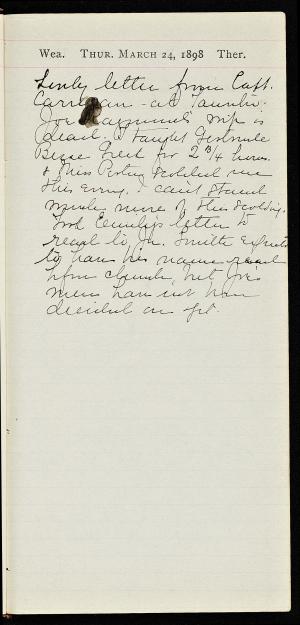 Wea. THUR. MARCH 24, 1898 Ther.
letter from Capt.
Carrigan - at Taunton.
Joe Raymond's wife is
dead. I taught Gertrude
for 2 3/4 hours.
& Miss scolded me
this evng. I can't stand
much more of this scolding.
Took Emily's letter to
read to Jn. Smith expects
to have his name read
from church, but Joe's
men have not been
decided on yet.